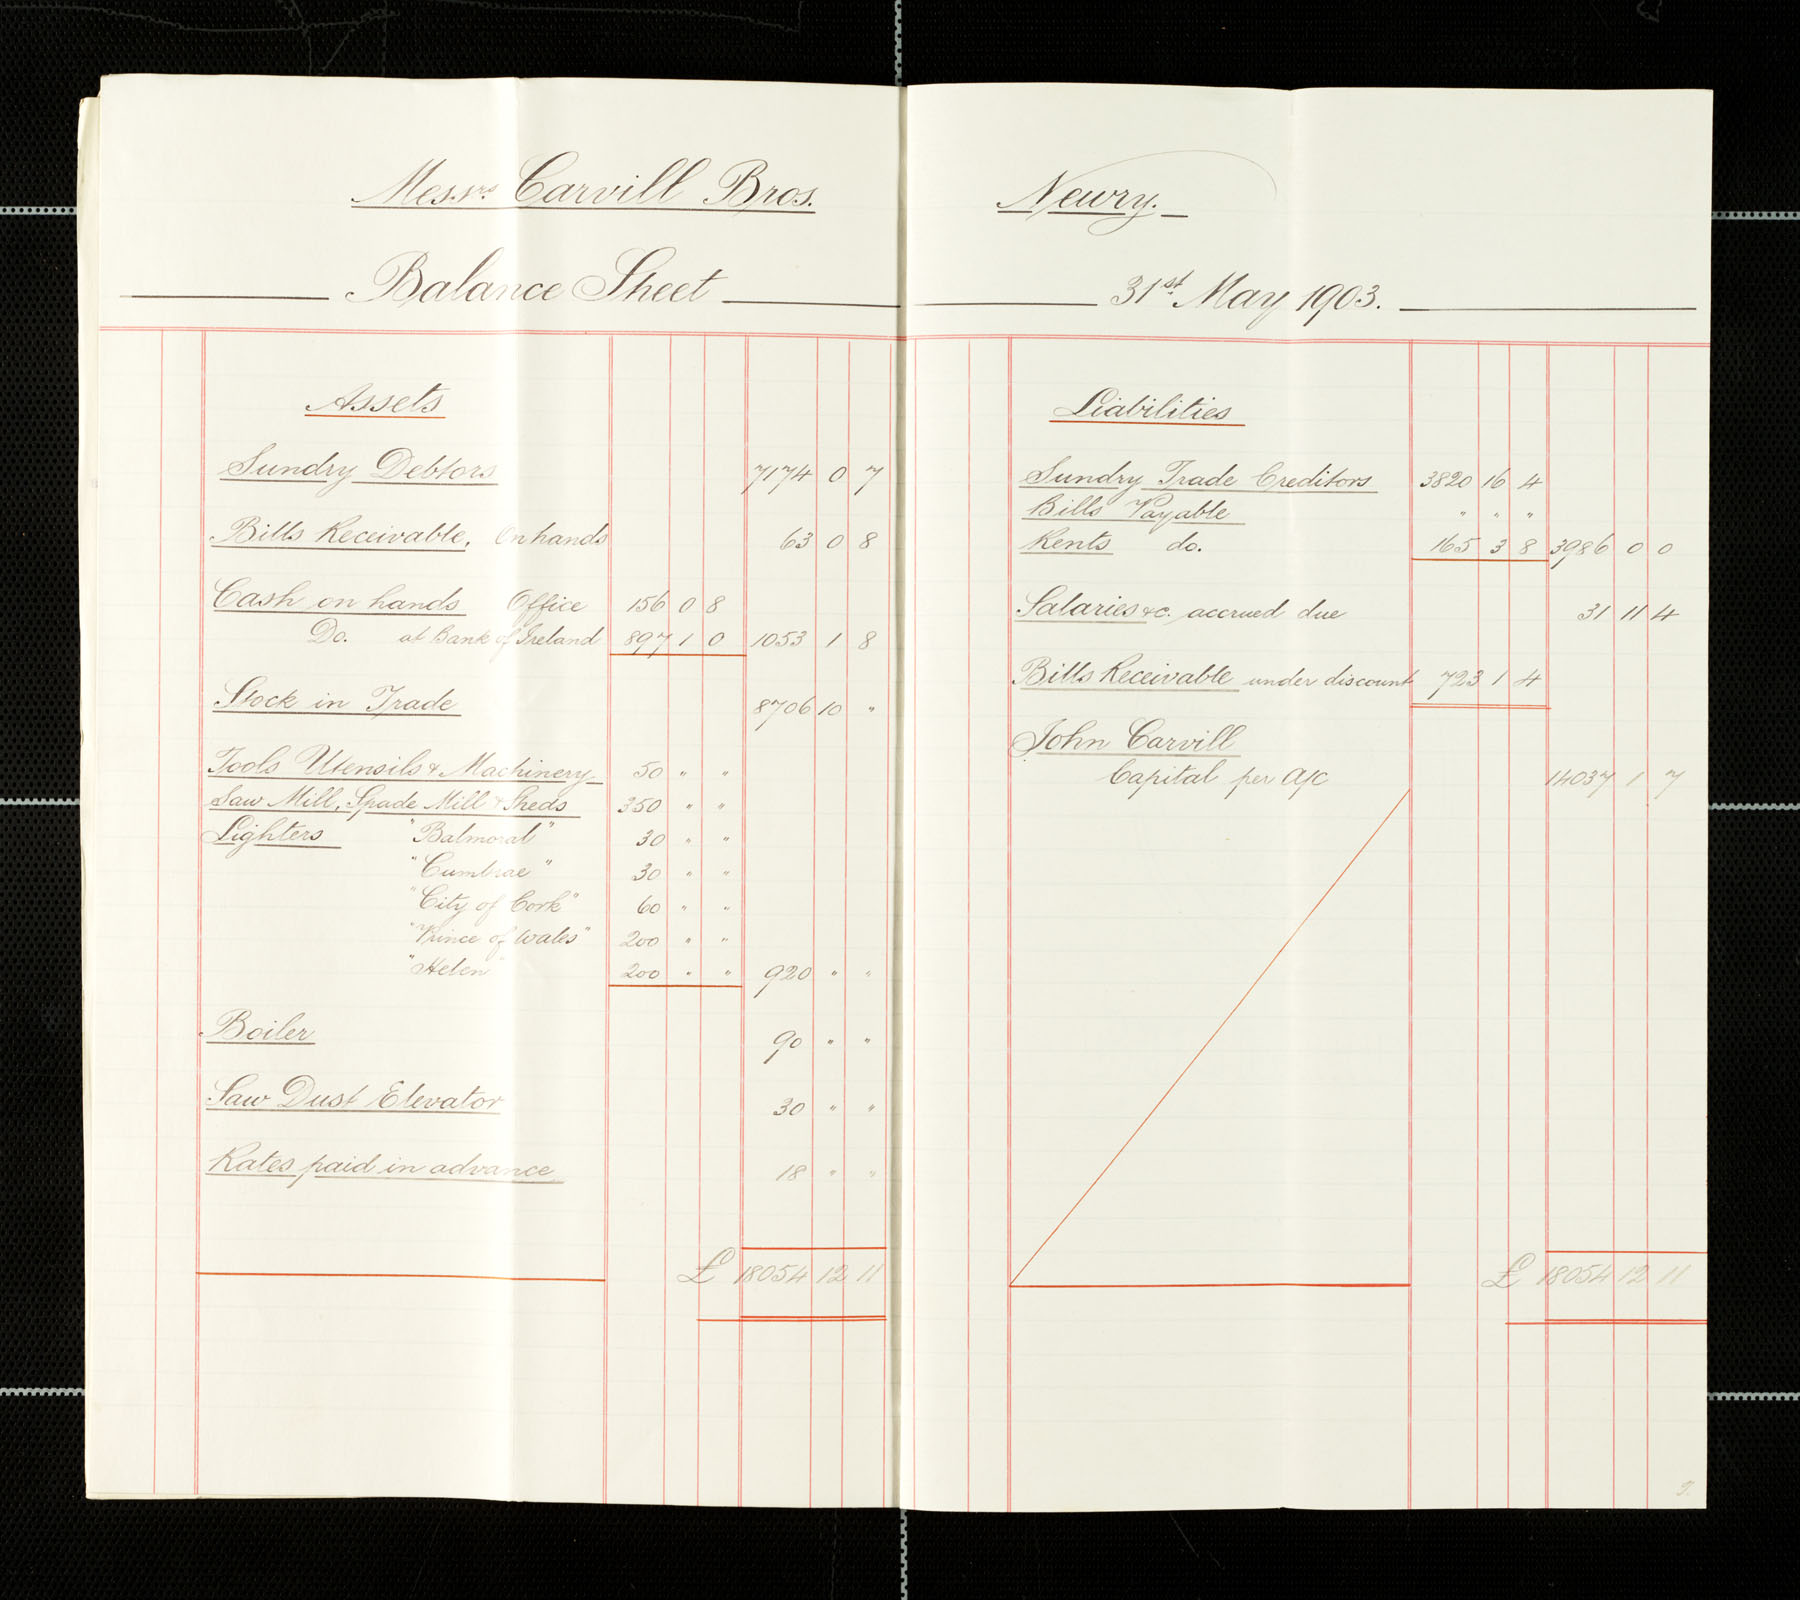 Messrs. Carvill Bros.
Balance Sheet
Assets
Sundry Debtors 7174 0 7
Bills Receivable, On hands 63 0 8
Cash on hands Office 156 0 8
Do. at Bank of Ireland 897 1 0 1053 1 8
Stock in Trade 8706 10 "
Tools Utensils & Machinery 50 " "
Saw Mill, Spade Mill & Sheds 350 " "
Lighters "Balmoral" 30 " "
"Cumbrae" 30 " "
"City of Cork" 60 " "
"Prince of Wales" 200 " "
"Helen" 200 " " 920 " "
Boiler 90 " "
Saw Dust Elevator 30 " "
Rates paid in advance 18 " "
£ 18054 12 11
Newry.
31st May 1903.
Liabilities
Sundry Trade Creditors 3820 16 4
Bills Payable " " "
Rents do. 165 3 8 3986 0 0
Salaries &c. accrued due 31 11 4
Bills Receivable under discount 723 1 4
John Carvill
Capital per A/c 14037 1 7
£ 18054 12 11